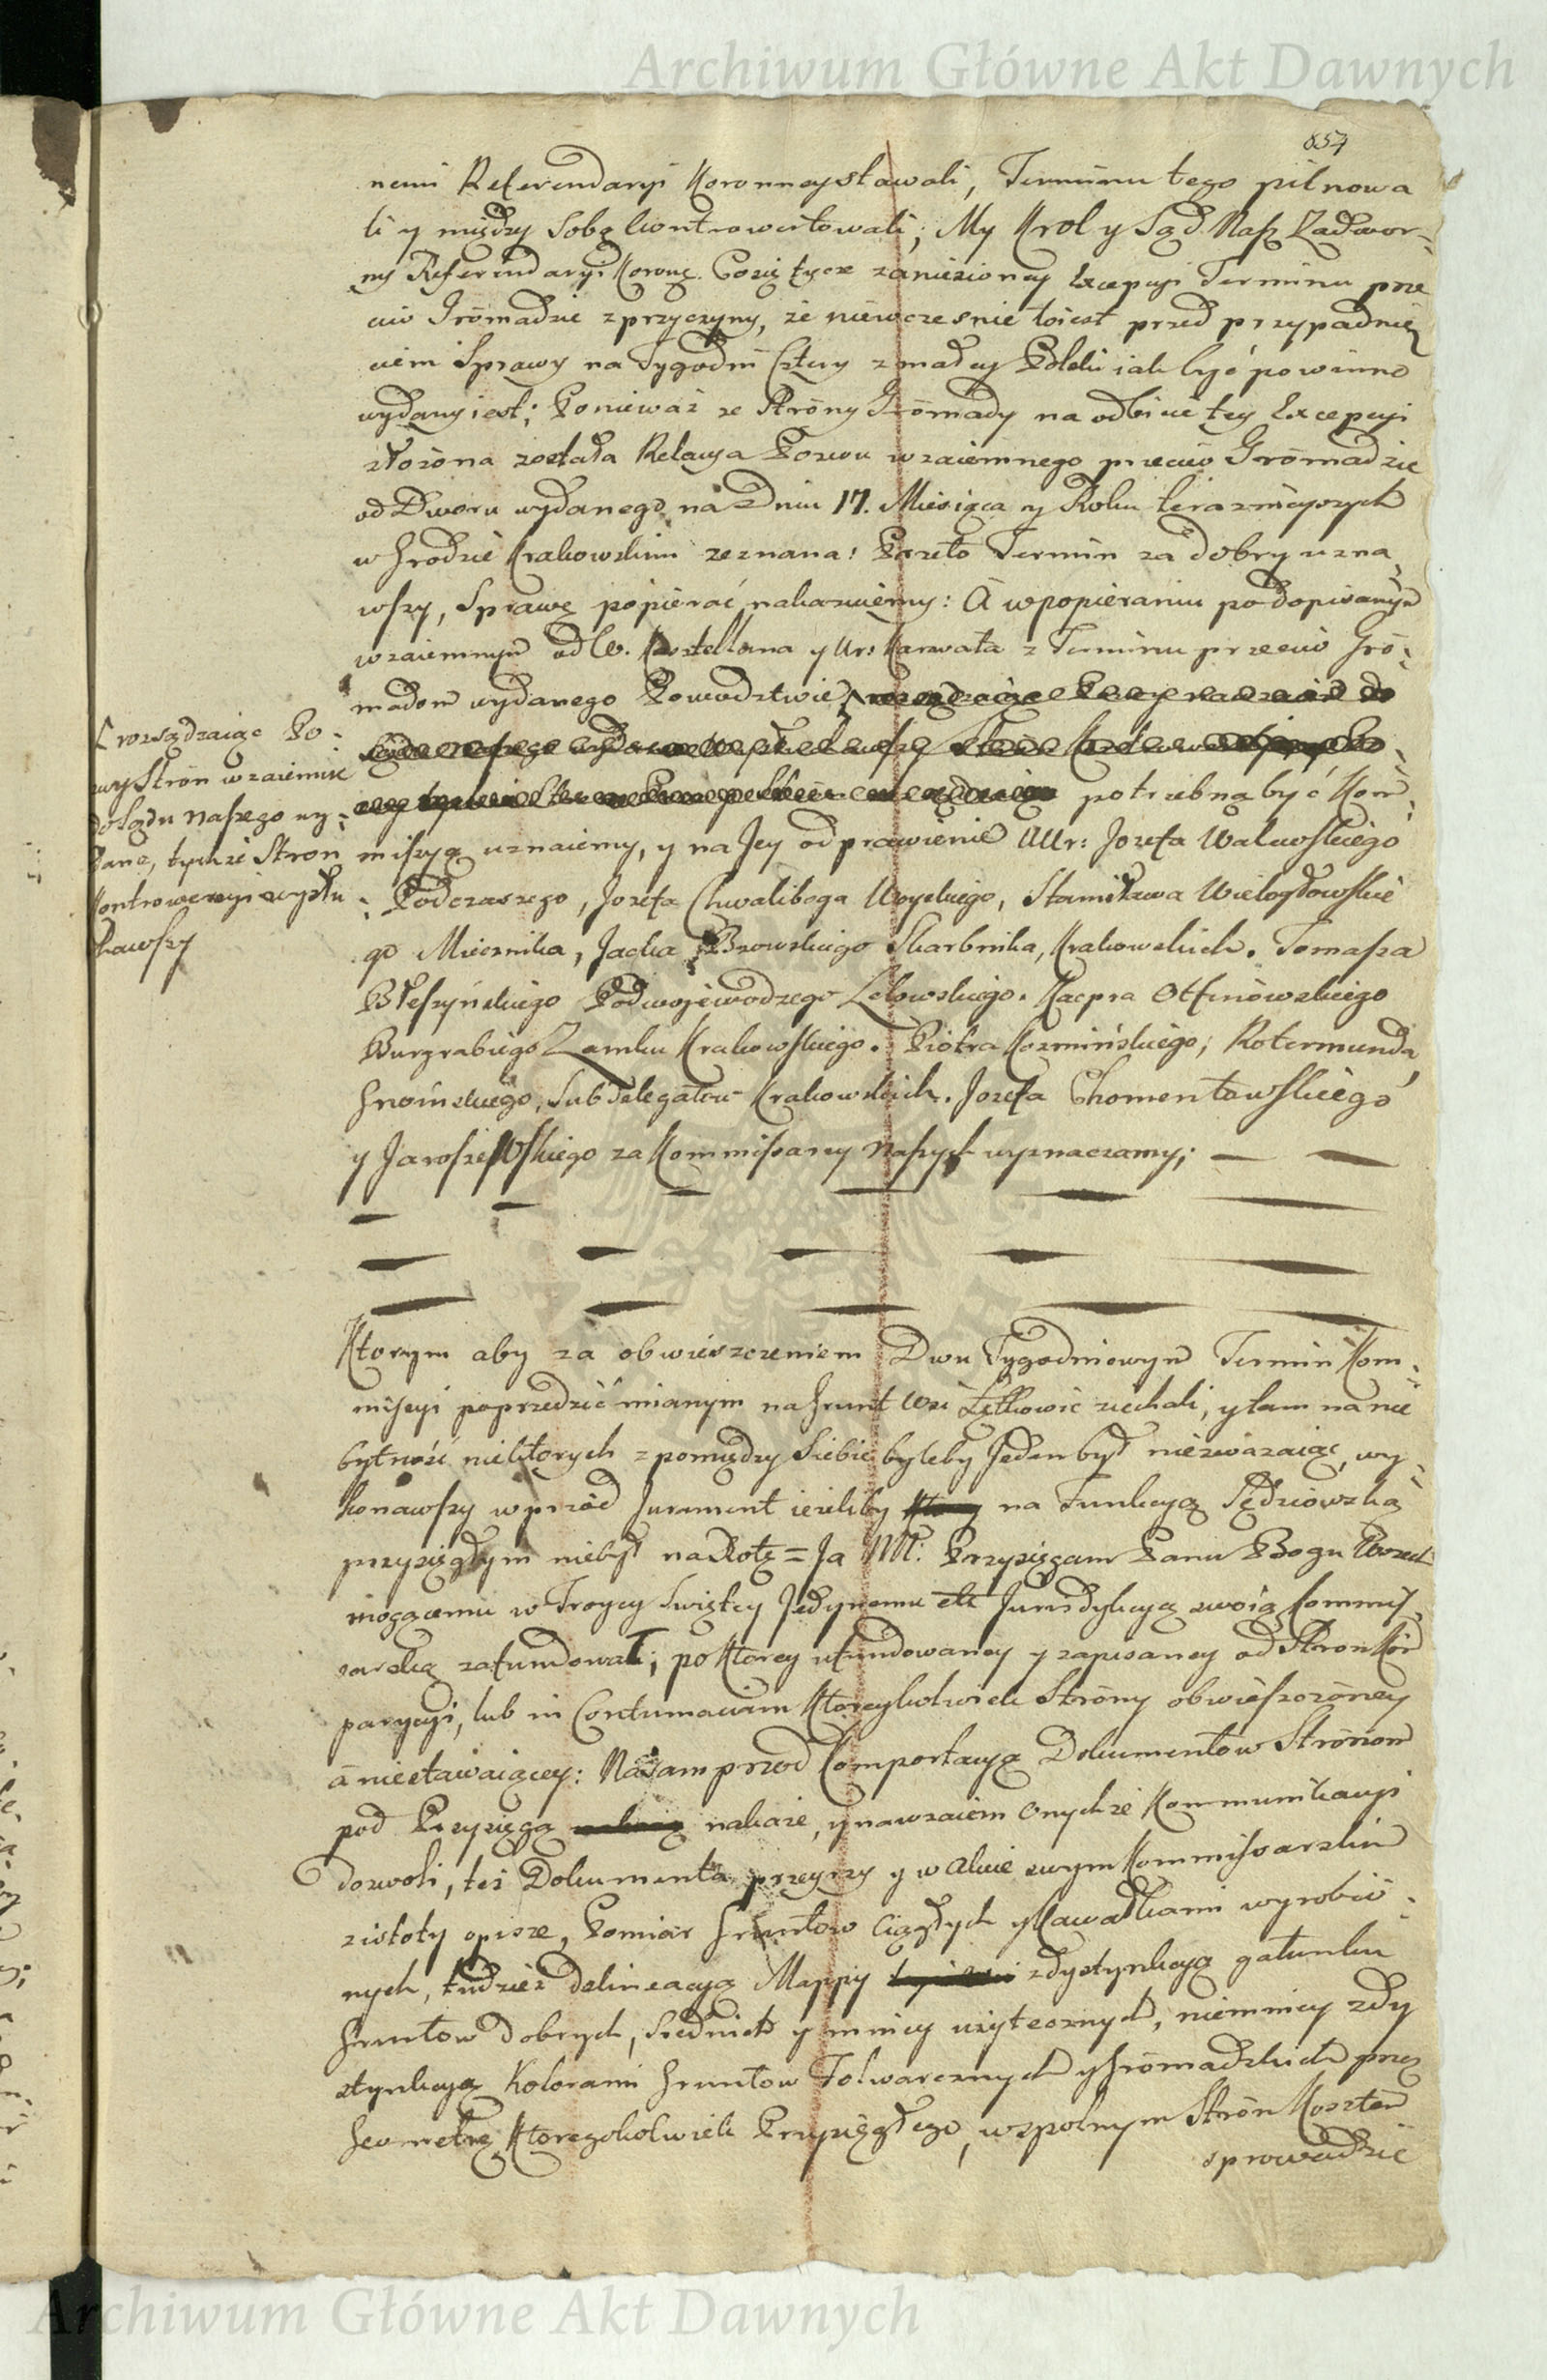 Archiwum Główne Akt Dawnych
657
nemi Referendaryi Koronney stawali, Terminu tego pilnowa
li y między sobą kontrowertowali; My Krol y Sąd Nasz Zadwor-
ny Referendaryi Koronę. Co się tycze zaniesioney Excepcyi Terminu prze
ciw Gromadzie z przyczyny, że niewcześnie to iest przed przypadnię
ciem Sprawy na Tygodni Cztery z małey Polski iak być powinno
wydany iest; Ponieważ ze Strony Gromady na odbicie tey Excepcyi
złożona została Relacya Pozwu wzaiemnego przeciw Gromadzie
od Dworu wydanego na Dniu 17. Miesiąca y Roku teraznieyszych
w Grodzie Krakowskim zeznana: Przeto Termin za dobry uzna-
wszy, Sprawę popierać nakazuiemy: A w popieraniu po dopisanym
wzaiemnym od W. Kasztellana y Ur: Karwata z Terminu przeciw Gro-
madom wydanego Powodztwie,
rozsądzaiąc Po-
zwy Stron wzaiemnie
do Sądu Naszego wy-
dane, tychże Stron
kontrowersyi wysłu-
chawszy
potrzebną być Kom-
missyą uznaiemy, y na Jey odprawienie UUr: Jozefa Walewskiego
Podczaszego, Jozefa Chwaliboga Woyskiego, Stanisława Wielogłowskie
go Miecznika, Jacka Skarbnika, Krakowskich. Tomasza
Błeszyńskiego Podwojewodzego Lelowskiego. Kacpra Otfinowskiego
Burgrabiego Zamku Krakowskiego. Piotra Kozmińskiego, Rotermunda
Gnoińskiego, Subdelegatow Krakowskich. Jozefa Chomentowskiego
y Jaroszewskiego za Kommissarzy Naszych wyznaczamy;
Ktorym aby za obwieszczeniem Dwu Tygodniowym Termin Kom-
missyi poprzedzić mianym na Grunt Wsi Łętkowic ziechali, y tam na nie
bytność niektorych z pomiędzy siebie byleby Jeden był niezważaiąc, wy-
konawszy wprzod Jurament ieżeliby na Funkcyą Sędziowską
przysięgłym niebył na Rotę = Ja NN: Przysięgam Panu Bogu Wszech
mogącemu w Troycy Swiętey Jedynemu etc Jurisdykcyą swoią Kommis-
sarską zafundował; po ktorey ufundowaney y zapisaney od Stron Kom
parycyi, lub in Contumaciam ktoreykolwiek Strony obwieszczoney
a niestawaiącey: Nasamprzod Comportacyą Dokumentow Stronom
pod Przysięgą nakaże, y nawzaiem onychże Kommunikacyi
dozwoli, też Dokumenta przeyrzy y w akcie swym Kommissarskim
z istoty opisze, Pomiar Gruntow ciągłych y kawałkami wyrobio-
nych, tudzież delineacyą Mappy z dystynkcyą gatunku
Gruntow dobrych, srednich y mniey użytecznych, niemniey z dy
stynkcyą Kolorami Gruntow Folwarcznych y Gromadzkich przez
Geometrę ktoregokolwiek Przysięgłego, wspolnym Stron Kosztem
sprowadzić
Archiwum Główne Akt Dawnych